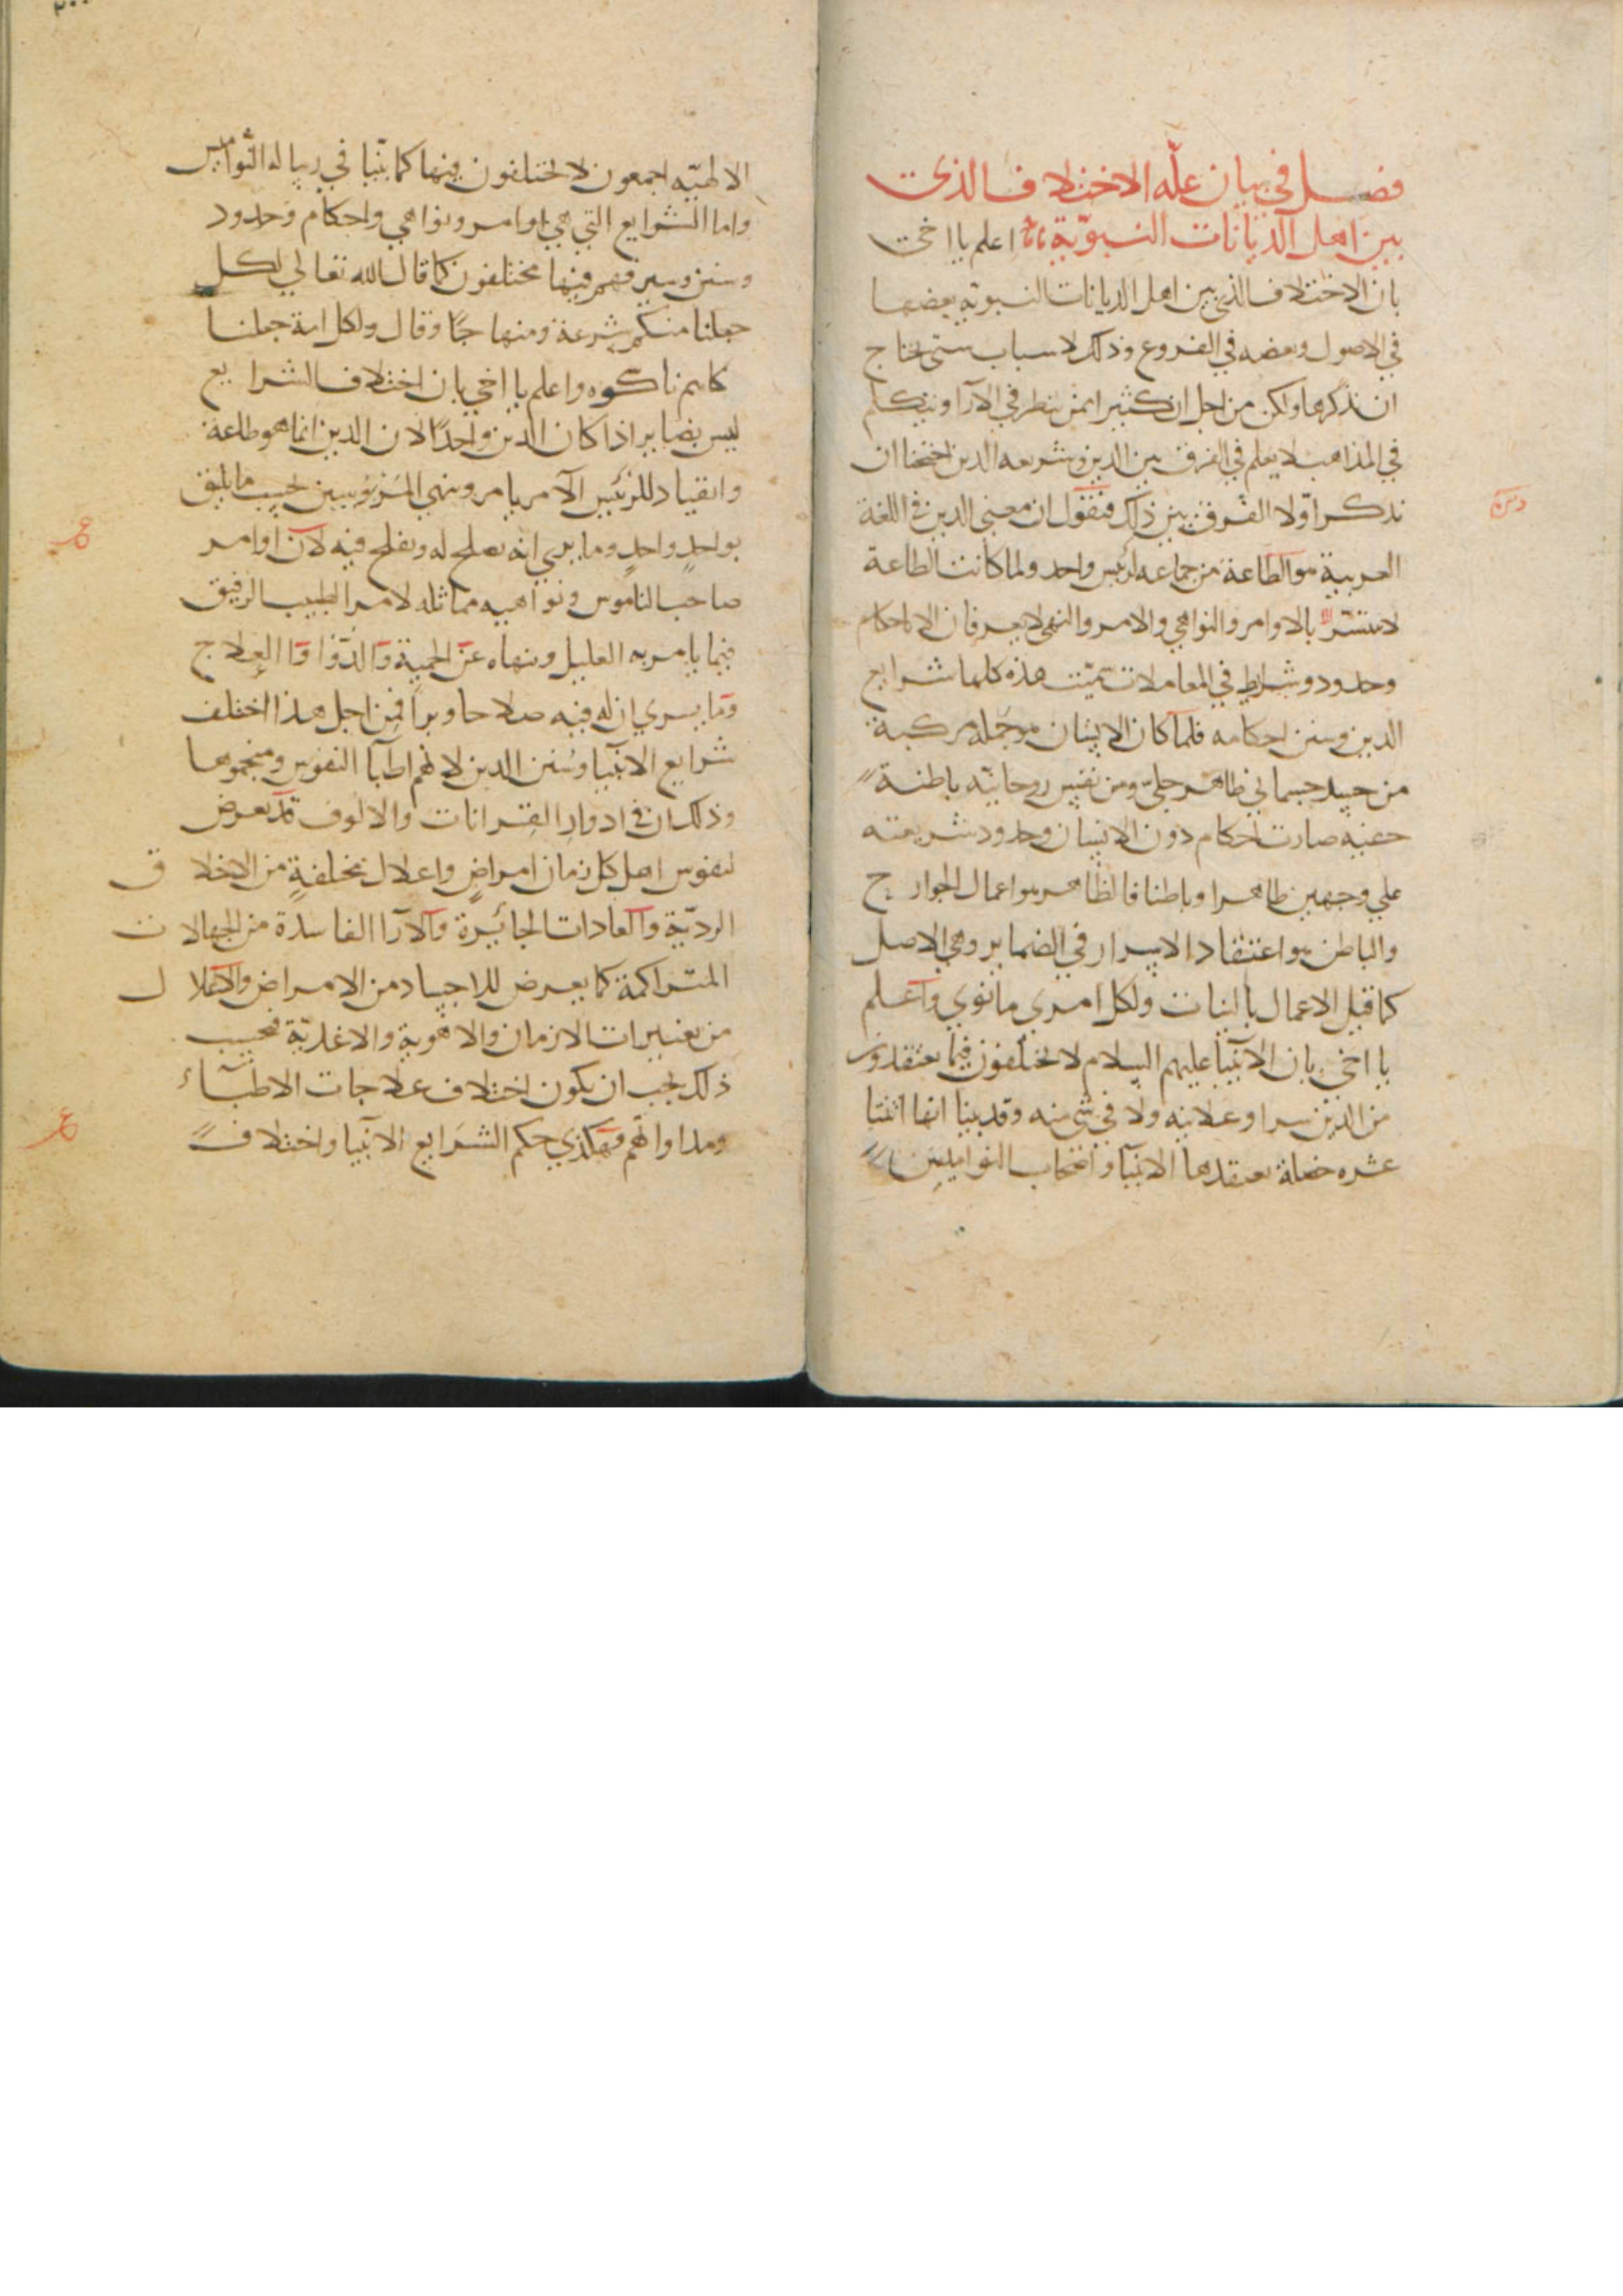 فصل في بيان علّه الاختلاف الذي
بين اهل الديانات النبويّة اعلم يا اخي
بان الاختلاف الذي بين اهل الديانات النبويّه بعضها
في الاصول وبعضه في الفروع وذلك لاسباب ستى يحتاج
ان نذكرها ولكن من اجل ان كثيرا ممن ينظر في الآرا ويتكلم
في المذاهب لا يعلم في الفرق بين الدين وشريعه الدين احتجنا ان
نذكر اوّلا الفرق بين ذلك فنقول ان معنى الدين في اللغة
العربية هو الطاعة من جماعه لرئيس واحد ولما كانت الطاعة
لا تتبيّن الا بالاوامر والنواهي والامر والنهى لا يعرفان الا باحكام
وحدود وشرايط في المعاملات سمّيت هذه كلها شرايع
الدين وسنن احكامه فلما كان الانسان هو جمله مركبة
من جسد جسماني ظاهر جليّ ومن نفس روحانيّه باطنة
خفيه صارت احكام دون الانسان وحدود شريعته
علي وجهين ظاهرا وباطنا فالظاهر هو اعمال الجوارح
والباطن هو اعتقاد الاسرار في الضماير وهي الاصل
كما قيل الاعمال بالنيات ولكل امري ما نوي واعلم
يا اخي بان الانبيا عليهم السلام لا يختلفون فيما يعتقدون
من الدين سرا وعلانيه ولا في شي منه وقد بينا انفا اثنتا
عشره خصلة يعتقدها الانبيا واصحاب النواميس
الالهيّه اجمعون لا يختلفون فيها كما بيّنا في رساله النواميس
واما الشرايع التي هي اوامر ونواهي واحكام وحدود
وسنن وسير فهم فيها مختلفون كما قال الله تعالي لكل
جعلنا منكم شرعة ومنهاجًا وقال ولكل امة جعلنا
ناسكوه واعلم يا اخي بان اختلاف الشرايع
ليس بضاير اذا كان الدين واحدًا لان الدين انما هو طاعة
وانقياد للرئيس الآمر يامر وينهي المرؤسين بحسب ما يليق
بواحد واحد وما يري انه يصلح له ويفلح فيه لان اوامر
صاحب الناموس ونواهيه مماثله لامر الطبيب الرفيق
فيما يامر به العليل وينهاه عن الحمية والدّوا والعلاج
وما يري ان له فيه صلاحا وبراً فمن اجل هذا اختلف
شرايع الانبيا وسُنن الدين لانهم اطبآ النفوس ومنجموها
وذلك ان في ادوار القرانات والالوف قد تعرض
لنفوس اهل كل زمان امراضٍ واعلال مختلفةٍ من الاخلاق
الرديّة والعادات الجائرة والآرا الفاسدة من الجهالات
المتراكمة كما يعرض للاجساد من الامراض والاعلال
من تغييرات الازمان والاهوية والاغذيّة فبحسب
ذلك يجب ان يكون اختلاف علاجات الاطبّاء
ومداواتهم فهكذي حكم الشرَايع الانبيا واختلاف